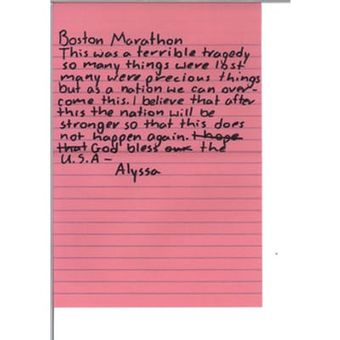 Boston Marathon
This was a terrible tragedy
so many things were lost
many were precious things
but as a nation we can over-
come this. I believe that after
this the nation will be
stronger so that this does
not happen again. I hope
that God bless our the
U.S.A-
Alyssa